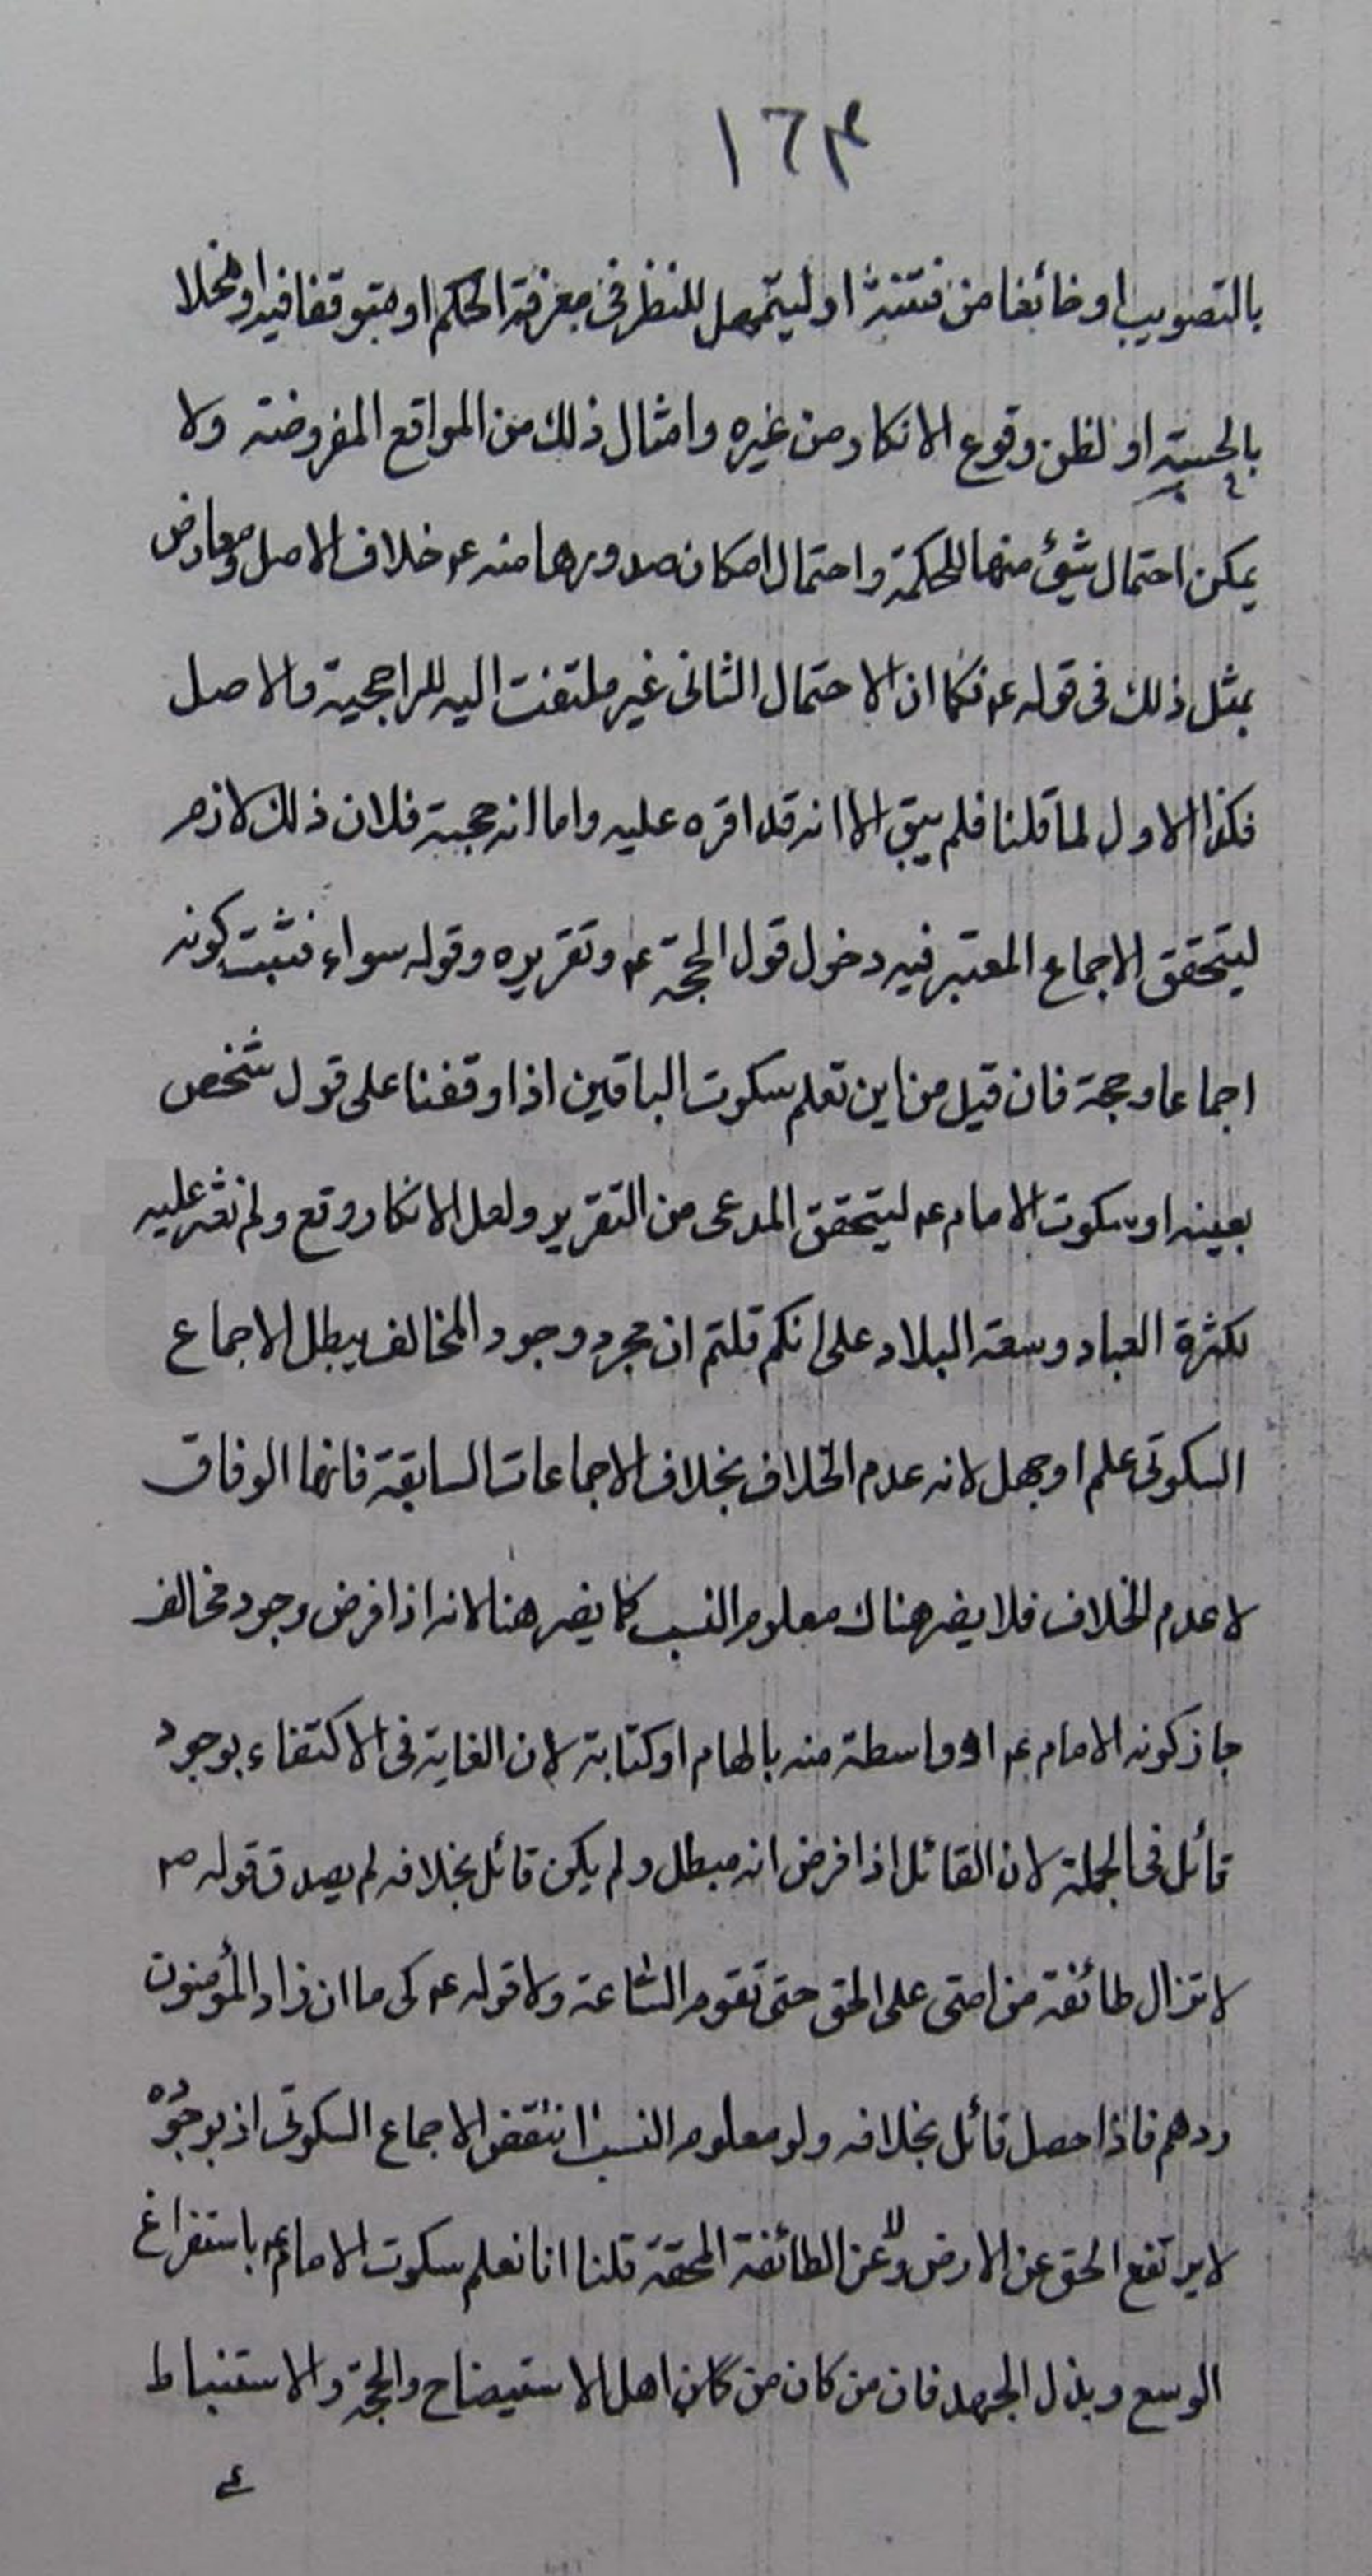 ١٦٣
بالتصويب او خائفا من فتنة او ليتمهل للنظر فى معرفة الحكم او متوقفا فيه او مخلا
بالحسبة او لظن وقوع الانكار من غيره وامثال ذلك من المواقع المفروضة ولا
يمكن احتمال شئ منها للحكمة واحتمال امكان صدورها منه ع خلاف الاصل ومعارض
بمثل ذلك فى قوله ع فكما ان الاحتمال الثانى غير ملتفت اليه للراجحية والاصل
فكذا الاول لما قلنا فلم يبق الا انه قد اقره عليه واما انه حجية فلان ذلك لازم
ليتحقق الاجماع المعتبر فيه دخول قول الحجة ع وتقريره وقوله سواء فثبت كونه
اجماعا وحجة فان قيل من اين تعلم سكوت الباقين اذا وقفنا على قول شخص
بعينه او سكوت الامام ع ليتحقق المدعى من التقرير ولعل الانكار وقع ولم نعثر عليه
لكثرة العباد وسعة البلاد على انكم قلتم ان مجرد وجود المخالف يبطل الاجماع
السكوتى علم او جهل لانه عدم الخلاف بخلاف الاجماعات السابقة فانها الوفاق
لا عدم الخلاف فلا يضر هناك معلوم النسب كما يضر هنا لانه اذا فرض وجود مخالف
جاز كونه الامام ع او واسطة منه بالهام او كتابة لان الغاية فى الاكتفاء بوجود
قائل فى الجملة لان القائل اذا فرض انه مبطل ولم يكن قائل بخلافه لم يصدق قوله ص
لا تزال طائفة من امتى على الحق حتى تقوم الساعة ولا قوله ع كى ما ان زاد المؤمنون
ردهم فاذا حصل قائل بخلافه ولو معلوم النسب انتقض الاجماع السكوتى اذ بوجوده
لا يرتفع الحق عن الارض ولا عن الطائفة المحقة قلنا انا نعلم سكوت الامام ع باستفراغ
الوسع وبذل الجهد فان من كان من كان اهل الاستيضاح والحجة والاستنباط